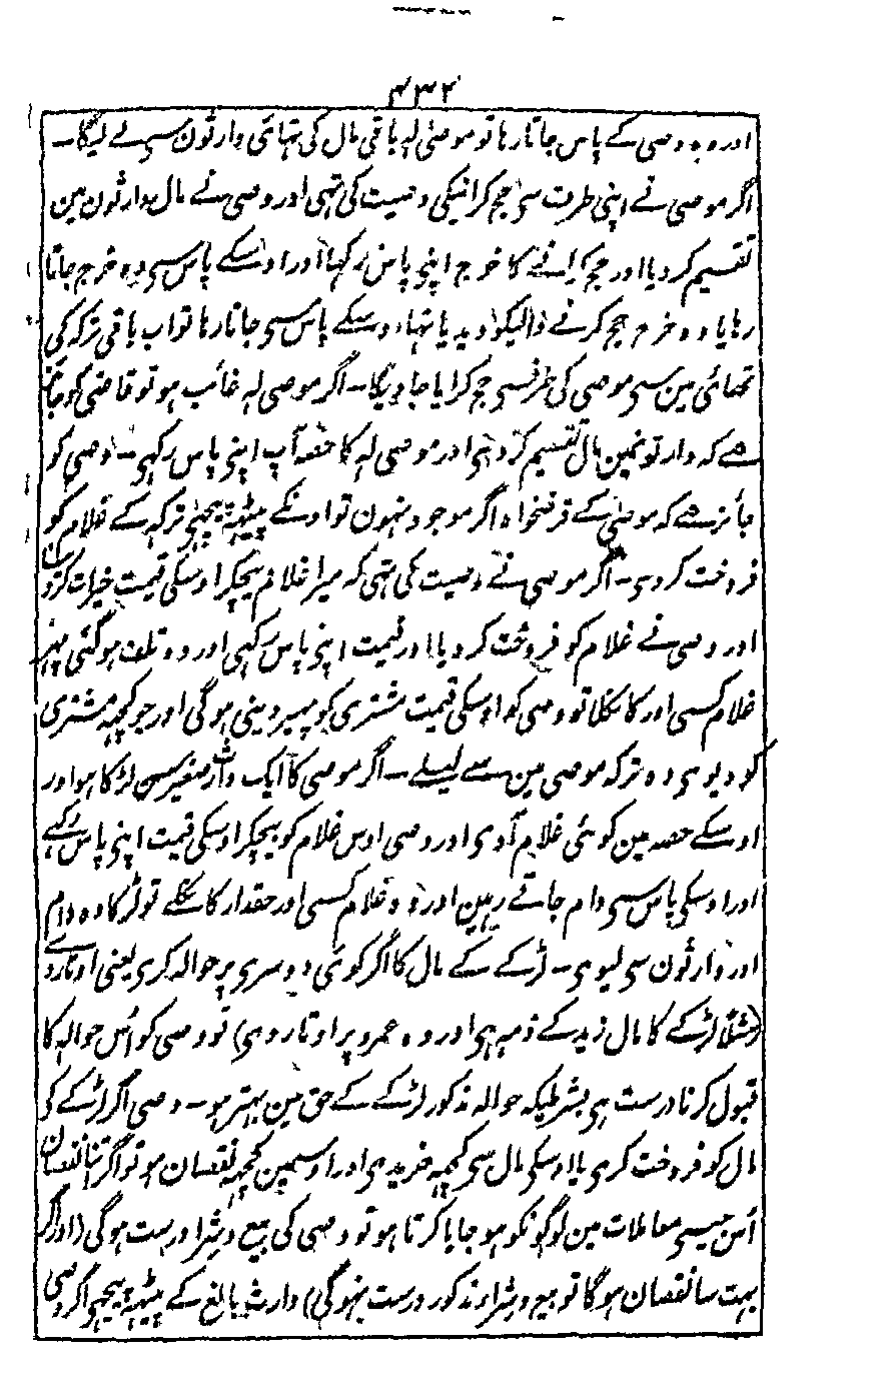 ۴۳۲
اور وہ وصی کے پاس جاتا رہا تو موصیٰ لہ باقی مال کی تہائی وارثون سے لے لیگا۔
اگر موصی نے اپنی طرف سے حج کرانیکی وصیت کی تہی اور وصی نے مال وارثون مین
تقسیم کر دیا اور حج کرانے کا خرج اپنے پاس رکہا اور اوسکے پاس سے وہ خرج جاتا
رہا یا وہ خرج حج کرنے والیکو دیدیا تہا اوسکے پاس سے جاتا رہا تو اب باقی ترکہ کی
تہائی مین سے موصی کی طرفسے حج کرایا جاویگا۔ اگر موصی لہ غائب ہو تو قاضی کو جائز
ہے کہ وارثونمین مال تقسیم کر دے اور موصی لہ کا حصہ آپ اپنے پاس رکہے۔ وصی کو
جائز ہے کہ موصی کے قرضخواہ اگر موجود نہون تو اونکے پیٹہہ پیچہے ترکہ کے غلام کو
فروخت کر دے۔ اگر موصی نے وصیت کی تہی کہ میرا غلام بیچکر اوسکی قیمت خیرات کر دینا
اور وصی نے غلام کو فروخت کر دیا اور قیمت اپنے پاس رکہی اور وہ تلف ہو گئی پہر
غلام کسی اور کا نکلا تو وصی کو اوسکی قیمت مشتری کو پہیر دینی ہوگی اور جو کچہہ مشتری
کو دیوے وہ ترکہ موصی مین سے لیلے۔ اگر موصی کا ایک وارث صغیر سن لڑکا ہو اور
اوسکے حصہ مین کوئی غلام آوے اور وصی اوس غلام کو بیچکر اوسکی قیمت اپنے پاس رکہے
اور اوسکے پاس سے دام جاتے رہین اور وہ غلام کسی اور حقدار کا نکلے تو لڑکا وہ دام
اور وارثون سے لیوے۔ لڑکے کے مال کا اگر کوئی دوسرے پر حوالہ کرے یعنی اوتار دے
(مثلاً لڑکے کا مال زید کے ذمہ ہے اور وہ عمرو پر اوتار دے) تو وصی کو اُس حوالہ کا
قبول کرنا درست ہے بشرطیکہ حوالہ مذکور لڑکے کے حق مین بہتر ہو۔ وصی اگر لڑکے کے
مال کو فروخت کرے یا اوسکے مال سے کچہہ خریدے اور اوسمین کچہہ نقصان ہو تو اگر اتنا نقصان
اُس جیسے معاملات مین لوگونکو ہو جایا کرتا ہو تو وصی کی بیع و شرا درست ہوگی (اور اگر
بہت سا نقصان ہوگا تو بیع و شراء مذکور درست نہوگی) وارث بالغ کے پیٹہہ پیچہے اگر وصی